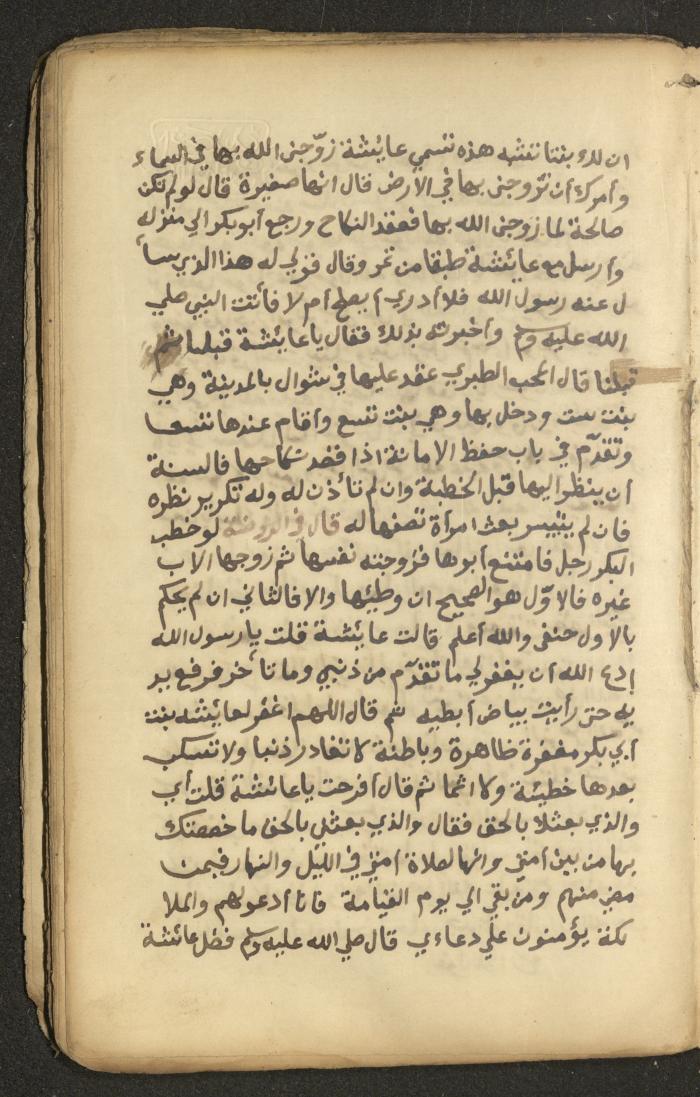 ان لك بنتا تشبه هذه تسمي عايشة زوّجني الله بها في السماء
وأمرك أن تزوجني بها في الارض قال انها صغيرة قال لو لم تكن
صالحة لما زوجني الله بها فعقد النكاح ورجع أبو بكر الي منزله
وأرسل مع عايشة طبقا من تمر وقال قولي له هذا الذي سأ
ل عنه رسول الله فلا أدري أيصلح أم لا فأتت النبي صلي
الله عليه وسلم وأخبرته بذلك فقال يا عايشة قبلنا ثم
قبلنا قال المحب الطبري عقد عليها في شوال بالمدينة وهي
بنت ست ودخل بها وهي بنت تسع وأقام عندها تسعا
وتقدّم في باب حفظ الامانة اذا قصد نكاحها فالسنة
أن ينظر اليها قبل الخطبة وان لم تأذن له وله تكرير نظره
فان لم يتيسر بعث امرأة تصفها له قال في الروضة لو خطب
البكر رجل فامتنع أبوها فزوجته نفسها ثم زوجها الاب
غيره فالاوّل هو الصحيح ان وطيها والا فالثاني ان لم يحكم
بالاول حنفي والله أعلم قالت عايشة قلت يا رسول الله
ادع الله أن يغفر لي ما تقدّم من ذنبي وما تأخر فرفع يد
يه حتي رأيت بياض أبطيه ثم قال اللهم اغفر لعايشه بنت
أبي بكر مغفرة ظاهرة وباطنة لا تغادر ذنبا ولا تكسب
بعدها خطيئة ولا اثما ثم قال أفرحت يا عائشة قلت أي
والذي بعثك بالحق فقال والذي بعثني بالحق ما خصصتك
بها من بين أمتي وانها لصلاة أمتي في الليل والنهار فيمن
مضي منهم ومن بقي الي يوم القيامة فانا أدعو لهم والملا
ئكة يؤمنون علي دعاءي قال صلي الله عليه وسلم فضل عائشة